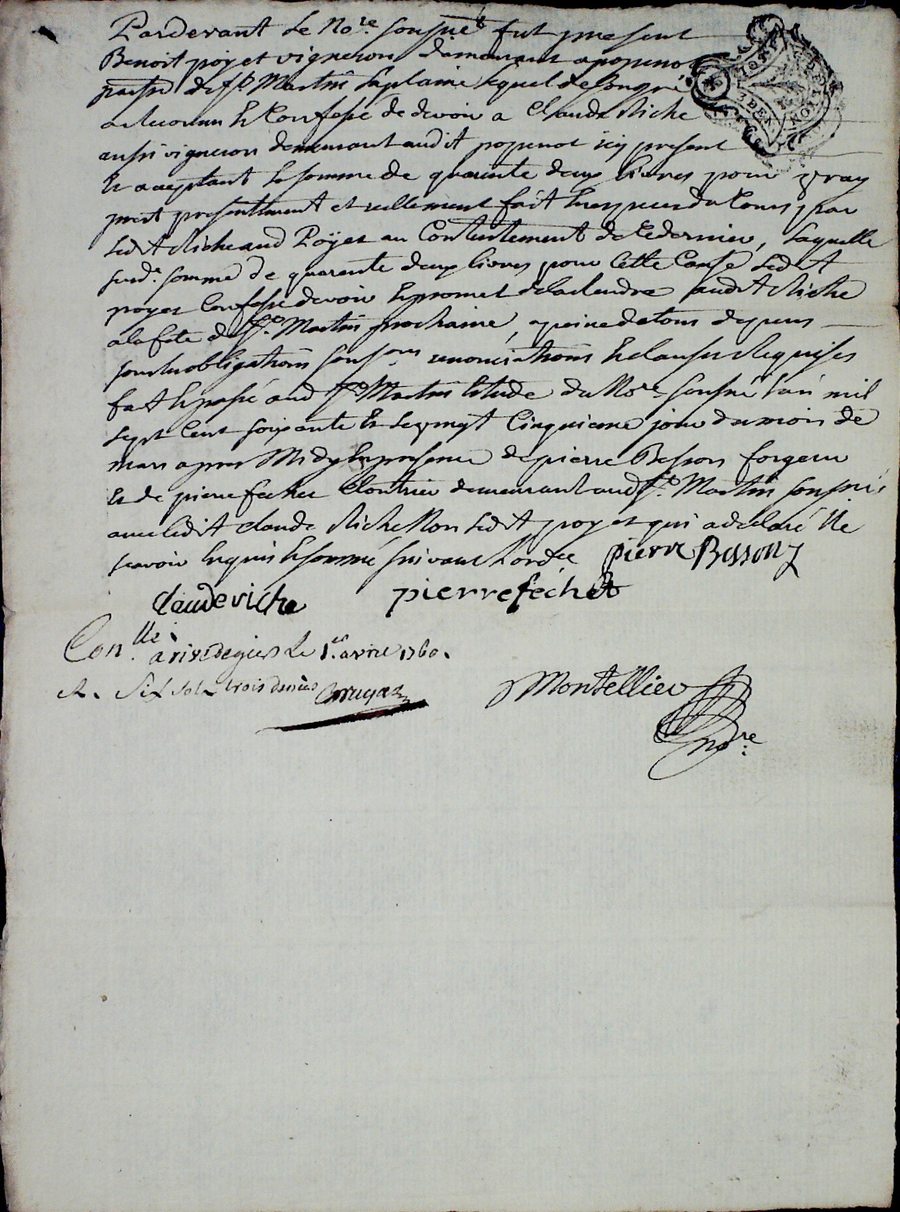 Pardevant Le No.re soussigné fut present
Benoit poyet vigneron demeurant a popenot
parsse de St Martin Laplaine Lequel de Son gré
a reconnu Et Confessé de devoir a Claude Riche
aussi vigneron demeurant audit popenot icy present
Et acceptant La somme de quarente deux livres pour vray
prest presentement et reellement fait En especes du Cours par
Ledit Riche aud Poyet au Contentement de Ce dernier, Laquelle
susd. somme de quarente deux livres pour Cette Cause Ledit
poyet Confesse devoir Et promet de La Rendre audit Riche
a la fete de St Martin prochaine, a peine de tous depens
sous les obligations soumons renonciations Et clauses Requises
fait Et passé aud St Martin Etude du No.re soussigné L'an mil
sept Cent soixante Et Le vingt Cinquieme jour du mois de
mars apres Midy En presence de pierre Besson forgeur
Et de pierre fechet Cloutrier demeurant aud St Martin soussignés
avec Ledit Claude Riche Non Ledit poyet qui a declaré Ne
scavoir Enquis Et sommé suivant L'ordce pierre Besson
claude riche pierre fechet
Con.lle a rivedegier Le 1.er avril 1760.
R. six sols trois deniers
Montellier
no.re